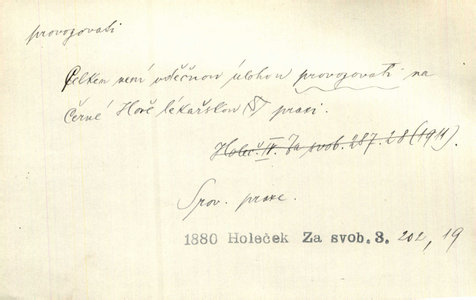 provozovati
Celkem není vděčnou úlohou provozovati na
Černé Hoře lékařskou praxi.
Holeč. IV. Za svob. 287. 28 (1911).
Srov. praxe.
1880 Holeček Za svob. 3. 202, 19